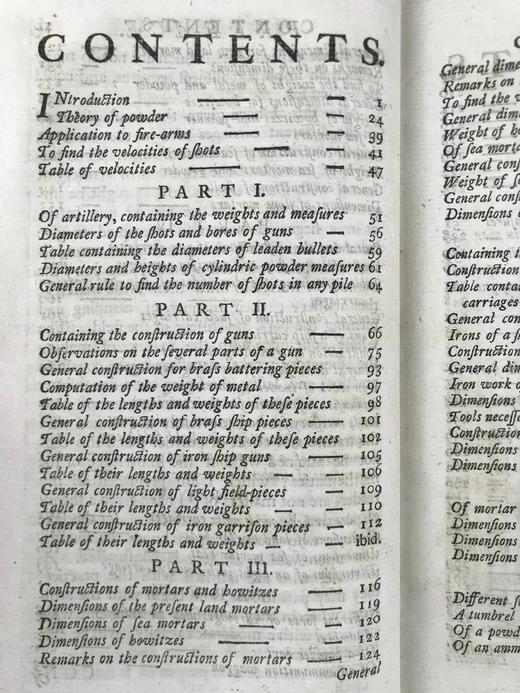 CONTENTS.
INtroduction 1
Theory of powder 24
Application to fire-arms 39
To find the velocities of ſhots 41
Table of velocities 47
PART I.
Of artillery, containing the weights and meaſures 51
Diameters of the ſhots and bores of guns 56
Table containing the diameters of leaden bullets 59
Diameters and heights of cylindric powder meaſures 61
General rule to find the number of ſhots in any pile 64
PART II.
Containing the conſtruction of guns 66
Obſervations on the ſeveral parts of a gun 75
General conſtruction for braſs battering pieces 93
Computation of the weight of metal 97
Table of the lengths and weights of theſe pieces 98
General conſtruction of braſs ſhip pieces 101
Table of the lengths and weights of theſe pieces 102
General conſtruction of iron ſhip guns 105
Table of their lengths and weights 106
General conſtruction of light field-pieces 109
Table of their lengths and weights 110
General conſtruction of iron garriſon pieces 112
Table of their lengths and weights ibid.
PART III.
Conſtructions of mortars and howitzes 116
Dimenſions of the preſent land mortars 119
Dimenſions of ſea mortars 120
Dimenſions of howitzes 122
Remarks on the conſtructions of mortars 124
General
General dime
Remarks on
To find the
General dim
Weight of
Of ſea mort
General conſ
Weight of
General conſ
Dimenſions
Containing t
Conſtruction
Table conta
carriages
General con
Irons of a
Conſtruction
General dim
Iron work
Dimenſions
Tools neceſſ
Conſtruction
Dimenſions
Dimenſions
Of mortar
Dimenſions
Dimenſions
Dimenſions
Different
A tumbrel
Of a powd
Of an amm